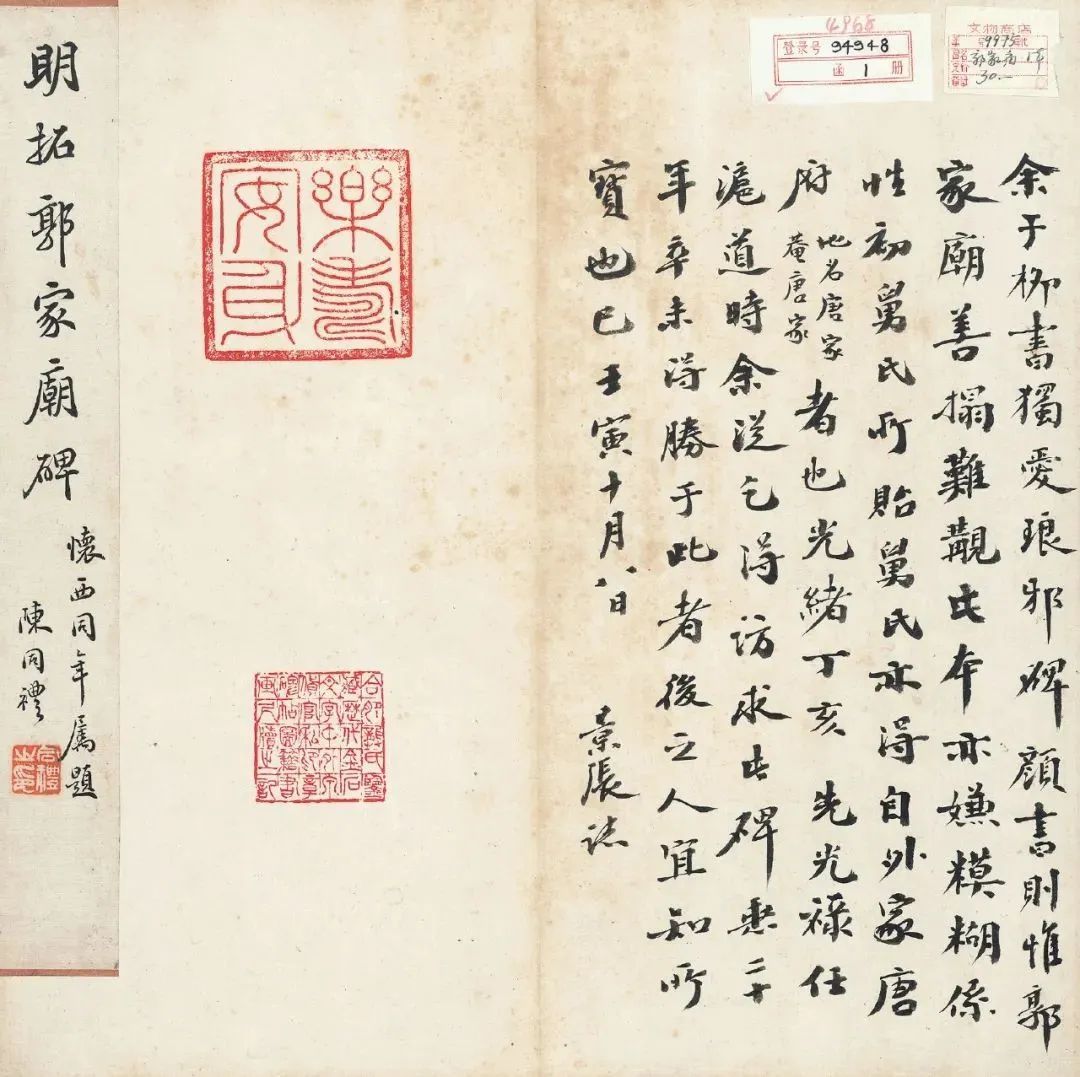 4968
登录号 94948
函 1 册
文物商店
9975
郭家庙
30.—
余于柳書獨愛琅邪碑顏書則惟郭
家廟善搨難覯此本亦嫌糢糊係
性初舅氏所貽舅氏亦得自外家唐
府地名唐家菴唐家者也光緒丁亥 先光祿任
滬道時余從乞得訪求此碑垂二十
年卒未得勝于此者後之人宜知所
寶也已壬寅十月八日
景張誌
明拓郭家廟碑
懷西同年屬題
陳同禮